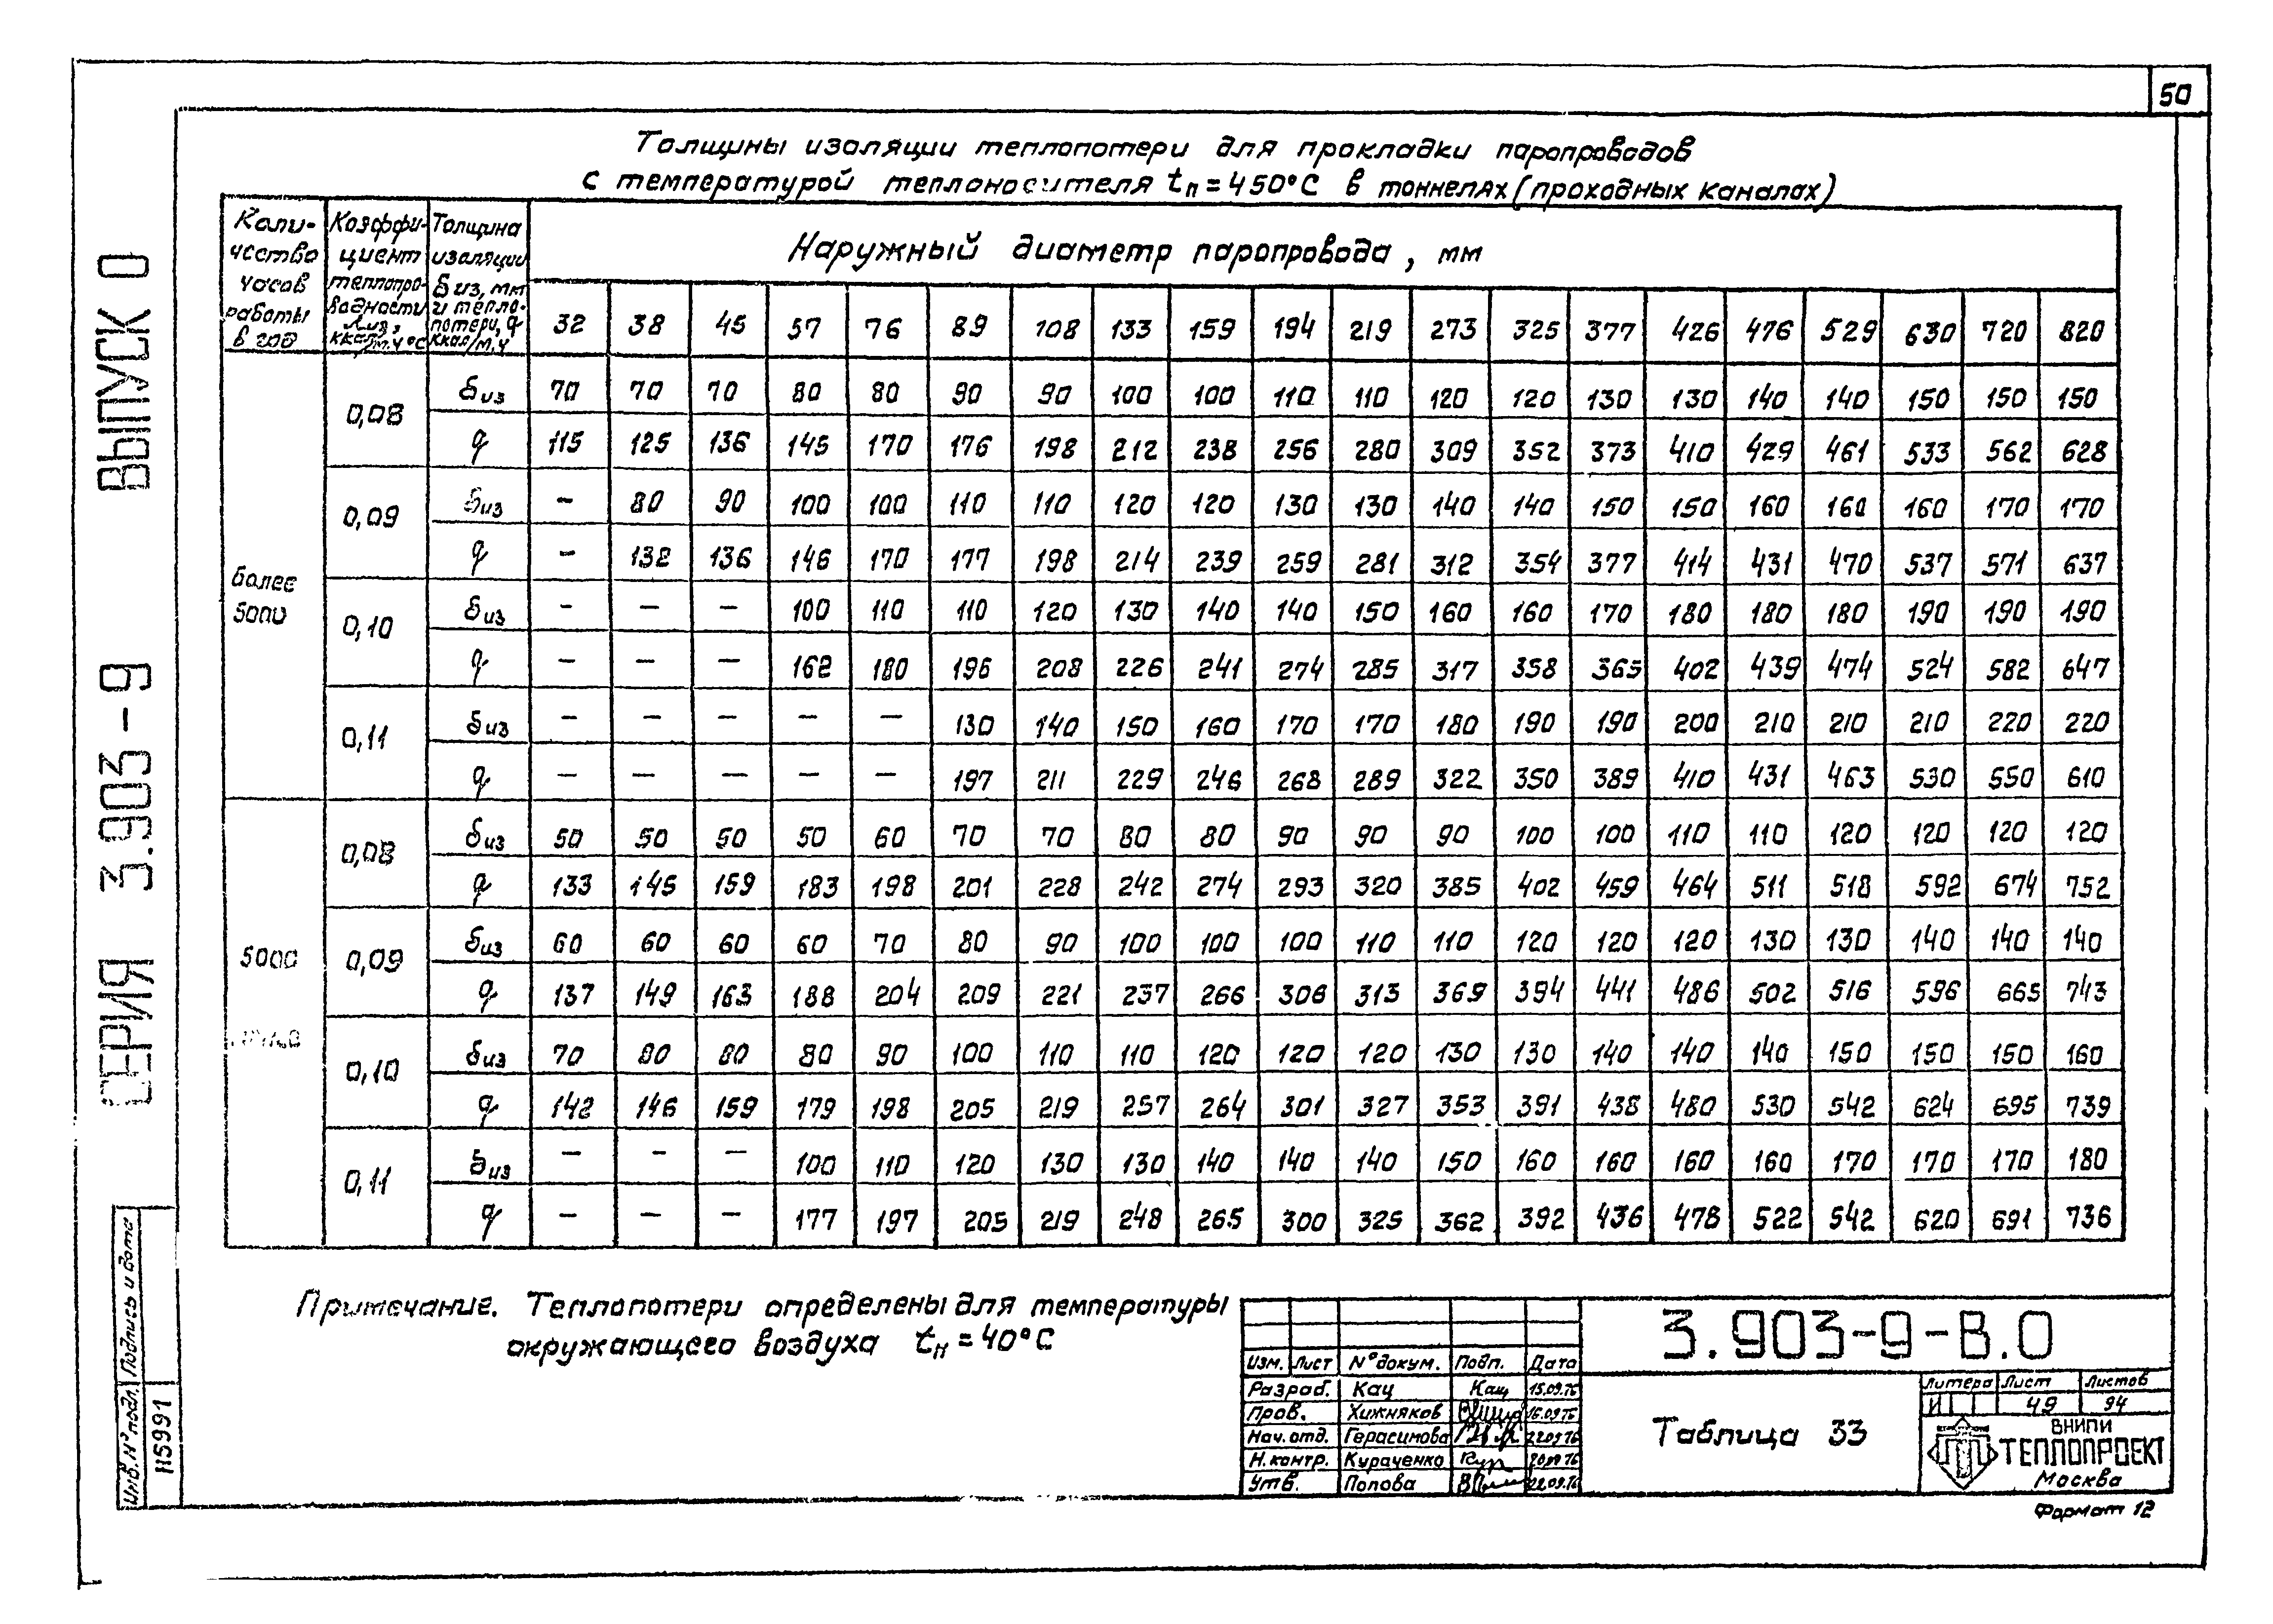 50
Толщины изоляции теплопотери для прокладки паропроводов
с температурой теплоносителя tп = 450°С в тоннелях (проходных каналах)
Коли-
чество
часов
работы
в год
Коэффи-
циент
теплопро-
водности
λиз,
ккал/м.ч°С
Толщина
изоляции
δиз, мм
и тепло-
потери, q
ккал/м.ч
Наружный диаметр паропровода, мм
32 38 45 57 76 89 108 133 159 194 219 273 325 377 426 476 529 630 720 820
более
5000
0,08
δиз 70 70 70 80 80 90 90 100 100 110 110 120 120 130 130 140 140 150 150 150
q 115 125 136 145 170 176 198 212 238 256 280 309 352 373 410 429 461 533 562 628
0,09
δиз – 80 90 100 100 110 110 120 120 130 130 140 140 150 150 160 160 160 170 170
q – 138 136 146 170 177 198 214 239 259 281 312 354 377 414 431 470 537 571 637
0,10
δиз – – – 100 110 110 120 130 140 140 150 160 160 170 180 180 180 190 190 190
q – – – 162 180 196 208 226 241 274 285 317 358 365 402 439 474 524 582 647
0,11
δиз – – – – – 130 140 150 160 170 170 180 190 190 200 210 210 210 220 220
q – – – – – 197 211 229 246 268 289 322 350 389 410 431 463 530 550 610
5000
0,08
δиз 50 50 50 50 60 70 70 80 80 90 90 90 100 100 110 110 120 120 120 120
q 133 145 159 183 198 201 228 242 274 293 320 385 402 459 464 511 518 592 674 752
0,09
δиз 60 60 60 60 70 80 90 100 100 100 110 110 120 120 120 130 130 140 140 140
q 137 149 163 188 204 209 221 237 266 306 313 369 394 441 486 502 516 596 665 743
0,10
δиз 70 80 80 80 90 100 110 110 120 120 120 130 130 140 140 140 150 150 150 160
q 142 146 159 179 198 205 219 257 264 301 327 353 391 438 480 530 542 624 695 739
0,11
δиз – – – 100 110 120 130 130 140 140 140 150 160 160 160 160 170 170 170 180
q – – – 177 197 205 219 248 265 300 325 362 392 436 478 522 542 620 691 736
Примечание. Теплопотери определены для температуры
окружающего воздуха tн = 40°С
СЕРИЯ 3.903-9 ВЫПУСК 0
Инв.№ подл. Подпись и дата
Н5991
Изм. Лист № докум. Подп. Дата
Разраб. Кац Кац 15.09.76
Пров. Хижняков 16.09.76
Нач.отд. Герасимова 22.09.76
Н.контр. Кураченко Кур 20.09.76
Утв. Попова 22.09.76
3.903-9-В.0
Таблица 33
Литера Лист Листов
И 49 94
ВНИПИ
ТЕПЛОПРОЕКТ
Москва
Формат 12